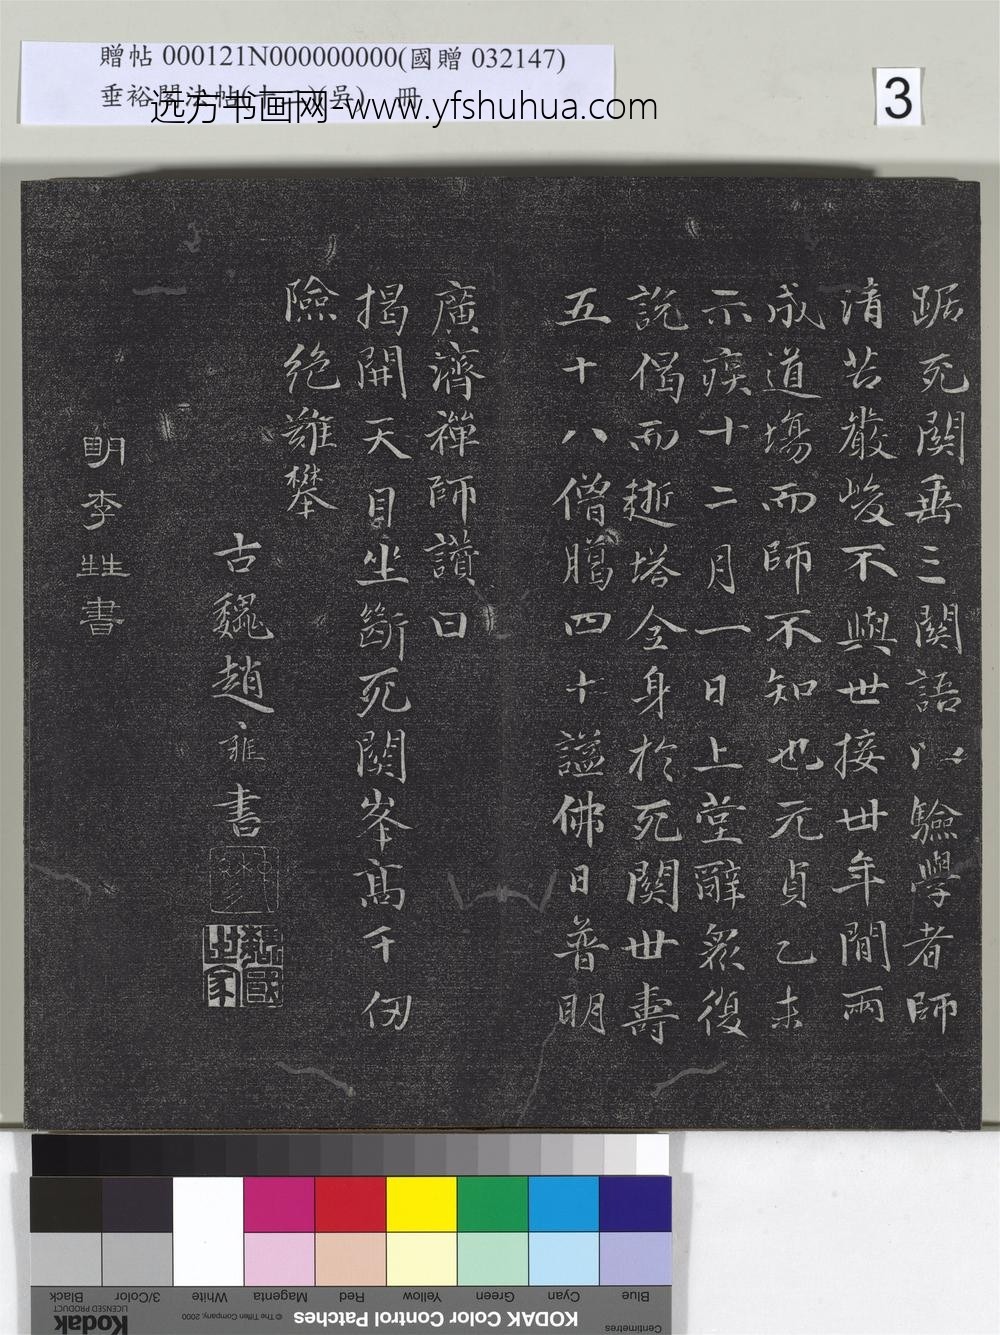 贈帖 000121N000000000(國贈 032147)
垂裕閣法帖(十一)(吳) 冊
远方书画网-www.yfshuhua.com
3
踞死關垂三關語以驗學者師
清苦嚴峻不與世接卅年間兩
成道場而師不知也元貞乙未
示疾十二月一日上堂辭衆復
說偈而逝塔全身於死關世壽
五十八僧臈四十謚佛日普明
廣濟禪師讚曰
揭開天目坐斷死關峯高千仞
險絶難攀
古魏趙雍書
魏國世家
明李甡書
Blue
Cyan
Green
Yellow
Red
Magenta
White
3/Color
Black
Centimetres
KODAK Color Control Patches
© The Tiffen Company, 2000
Kodak
LICENSED PRODUCT